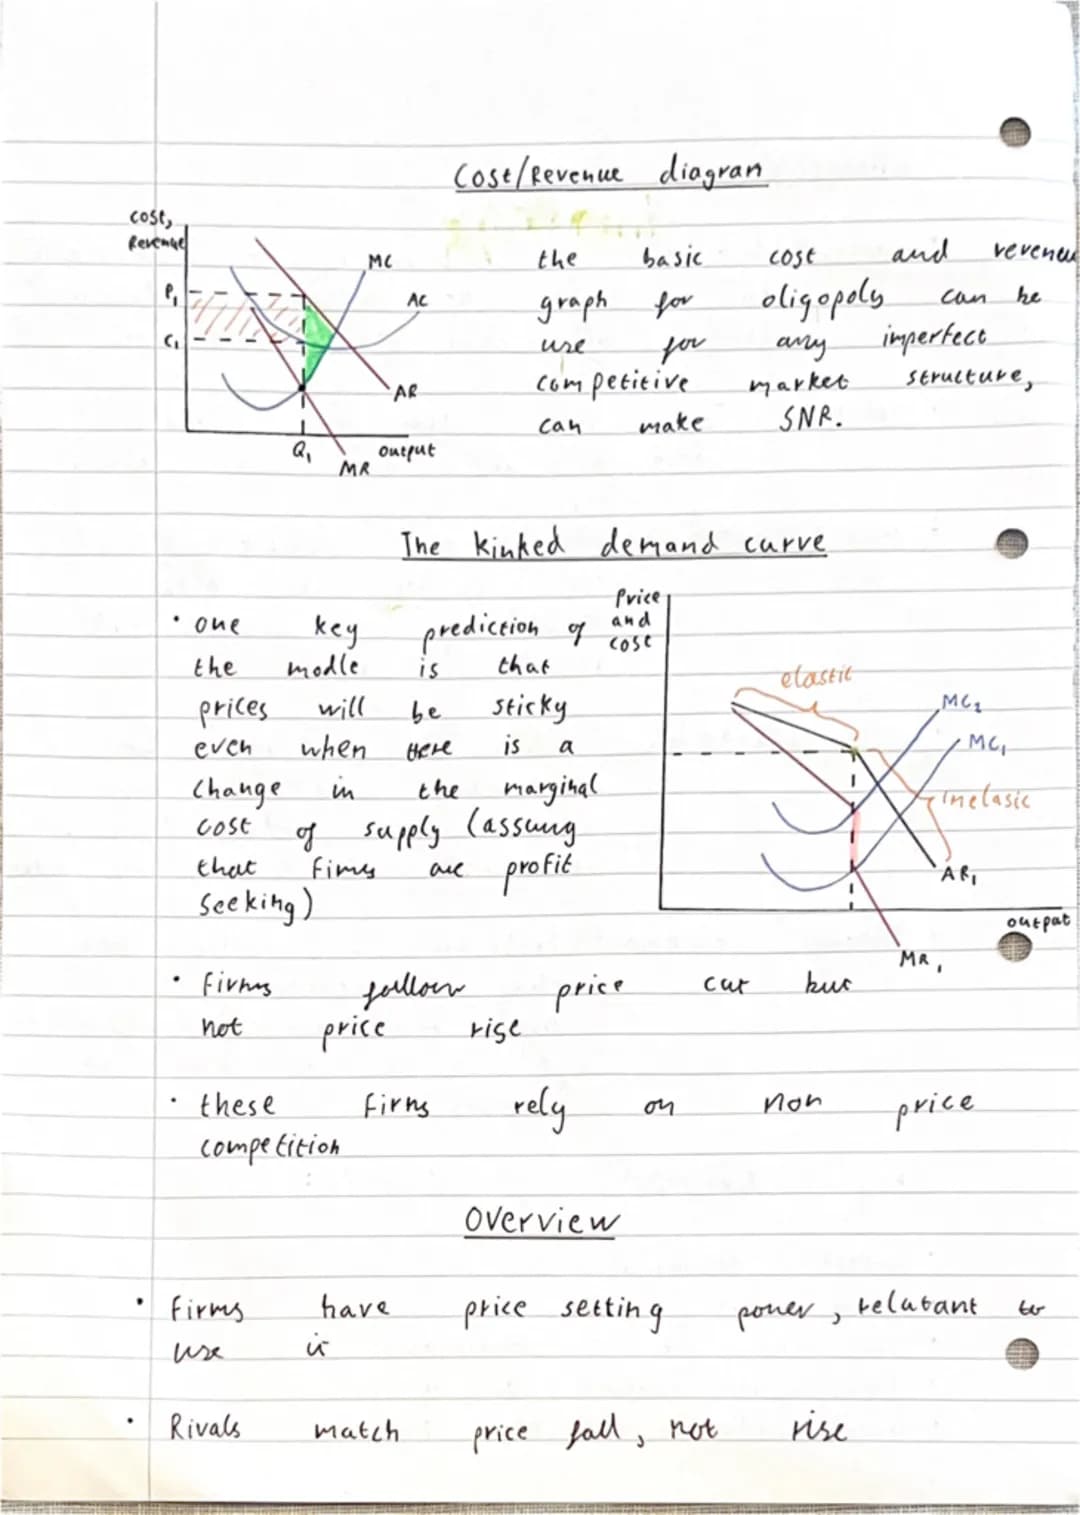 Cost/Revenue diagram
cost,
Revenue
MC
P₁
AC
C₁
AR
Q₁
output
MR
the basic cost and revenue
graph for oligopoly can be
use for any imperfect
competitive market structure,
can make SNP.
The kinked demand curve
• one key prediction of
the modle is that
prices will be sticky
even when there is a
change in the marginal
cost of supply (assung
that firms are profit
seeking)
Price
and
cost
elastic
MC₂
MC₁
inelasic
AR₁
output
MR₁
• firms follow price cut but
not price rise
• these firms rely on non price
competition
Overview
• Firms have price setting power, relutant to
use it
• Rivals match price fall, not rise